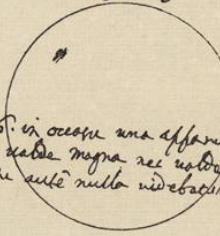 in occasu una apparu
valde magna nec valde
autē nulla videbatur